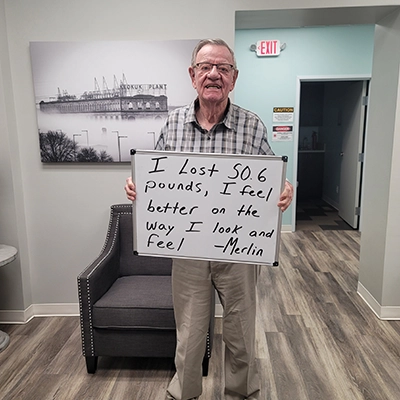 KEOKUK PLANT
EXIT
CAUTION
I Lost 50.6
pounds, I feel
better on the
way I look and
feel -Merlin